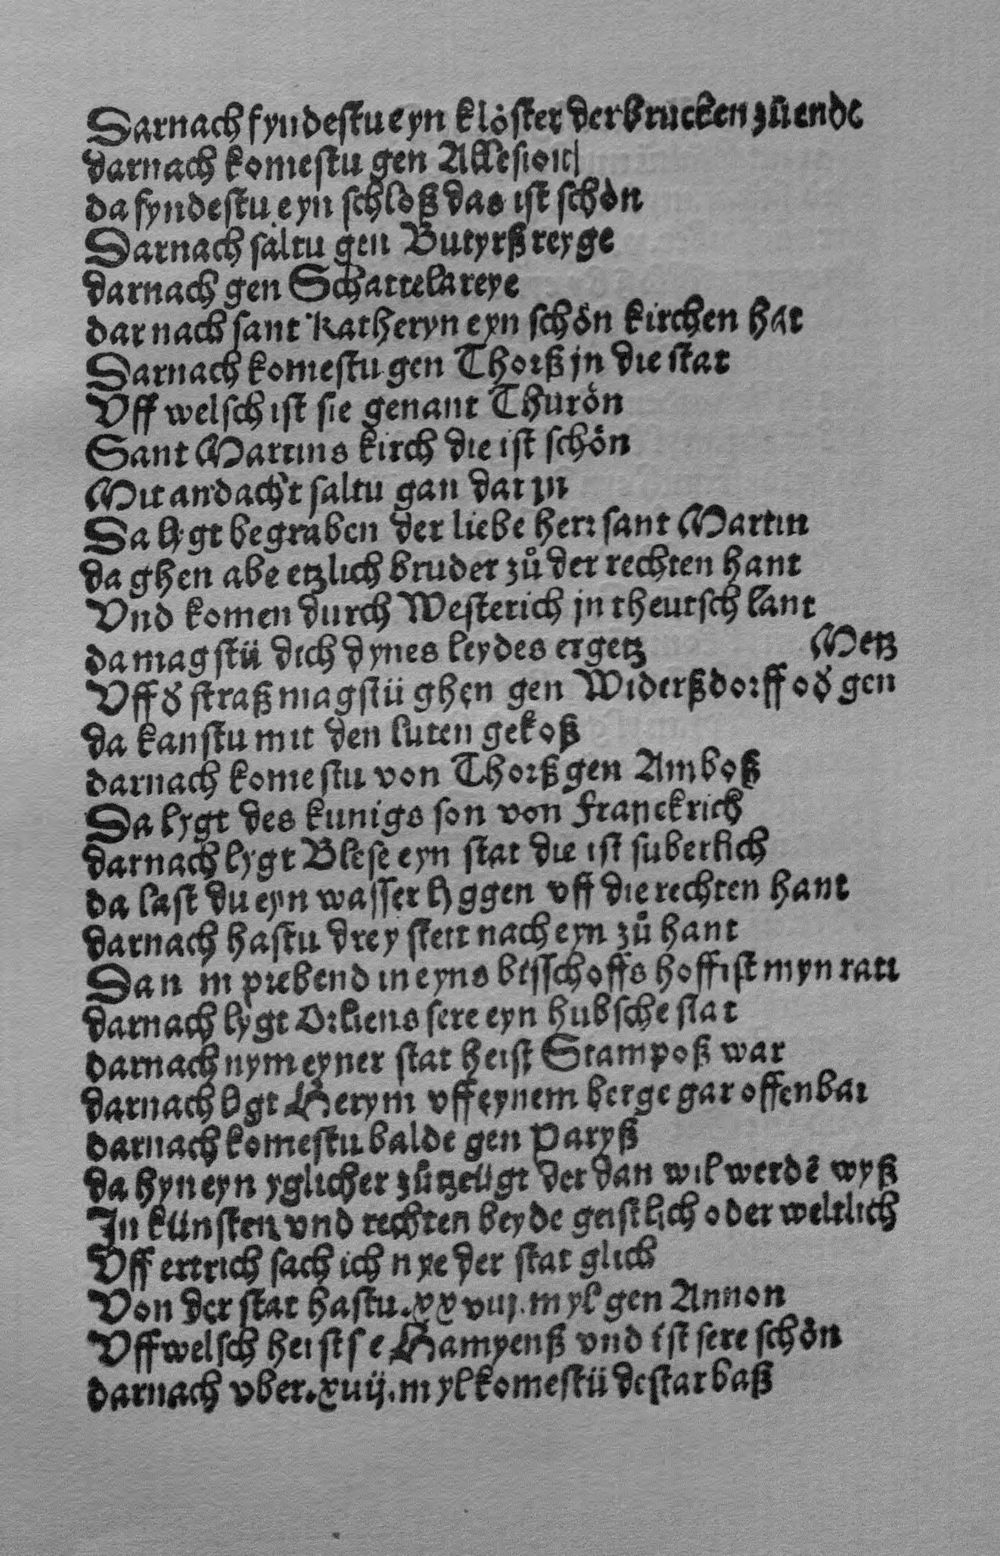 Darnach fyndestu eyn klöster der brucken zů ende
darnach komestu gen Allesion
da fyndestu eyn schloß das ist schön
Darnach saltu gen Butyrß reyge
darnach gen Schattelareye
dar nach sant Katheryn eyn schön kirchen hat
Darnach komestu gen Thorß jn die stat
Vff welsch ist sie genant Thurön
Sant Martins kirch die ist schön
Mit andacht saltu gan dar in
Da lygt begraben der liebe herr sant Martin
da ghen abe etzlich bruder zů der rechten hant
Vnd komen durch Westerich jn theutsch lant
da magstü dich dynes leydes ergetz Metz
Vff d̕ straß magstü ghen gen Widerßdorff od̕ gen
da kanstu mit den luten gekoß
darnach komestu von Thorß gen Amboß
Da lygt des kunigs son von Franckrich
darnach lygt Blese eyn stat die ist suberlich
da last du eyn wasser lyggen vff die rechten hant
darnach hastu drey stett nach eyn zů hant
Dan in prebend in eyns bisschoffs hoff ist myn ratt
darnach lygt Orliens sere eyn hubsche stat
darnach nym eyner stat heist Stampoß war
darnach lygt Herym vff eynem berge gar offenbar
darnach komestu balde gen Paryß
da hyn eyn yglicher zützeügt der dan wil werdē wyß
In künsten vnd rechten beyde geistlich oder weltlich
Vff ertrich sach ich nye der stat glich
Von der stat hastu .xxviij. myl gen Annon
Vff welsch heist se Hamyenß vnd ist sere schön
darnach vber .xvij. myl komestü destarbaß